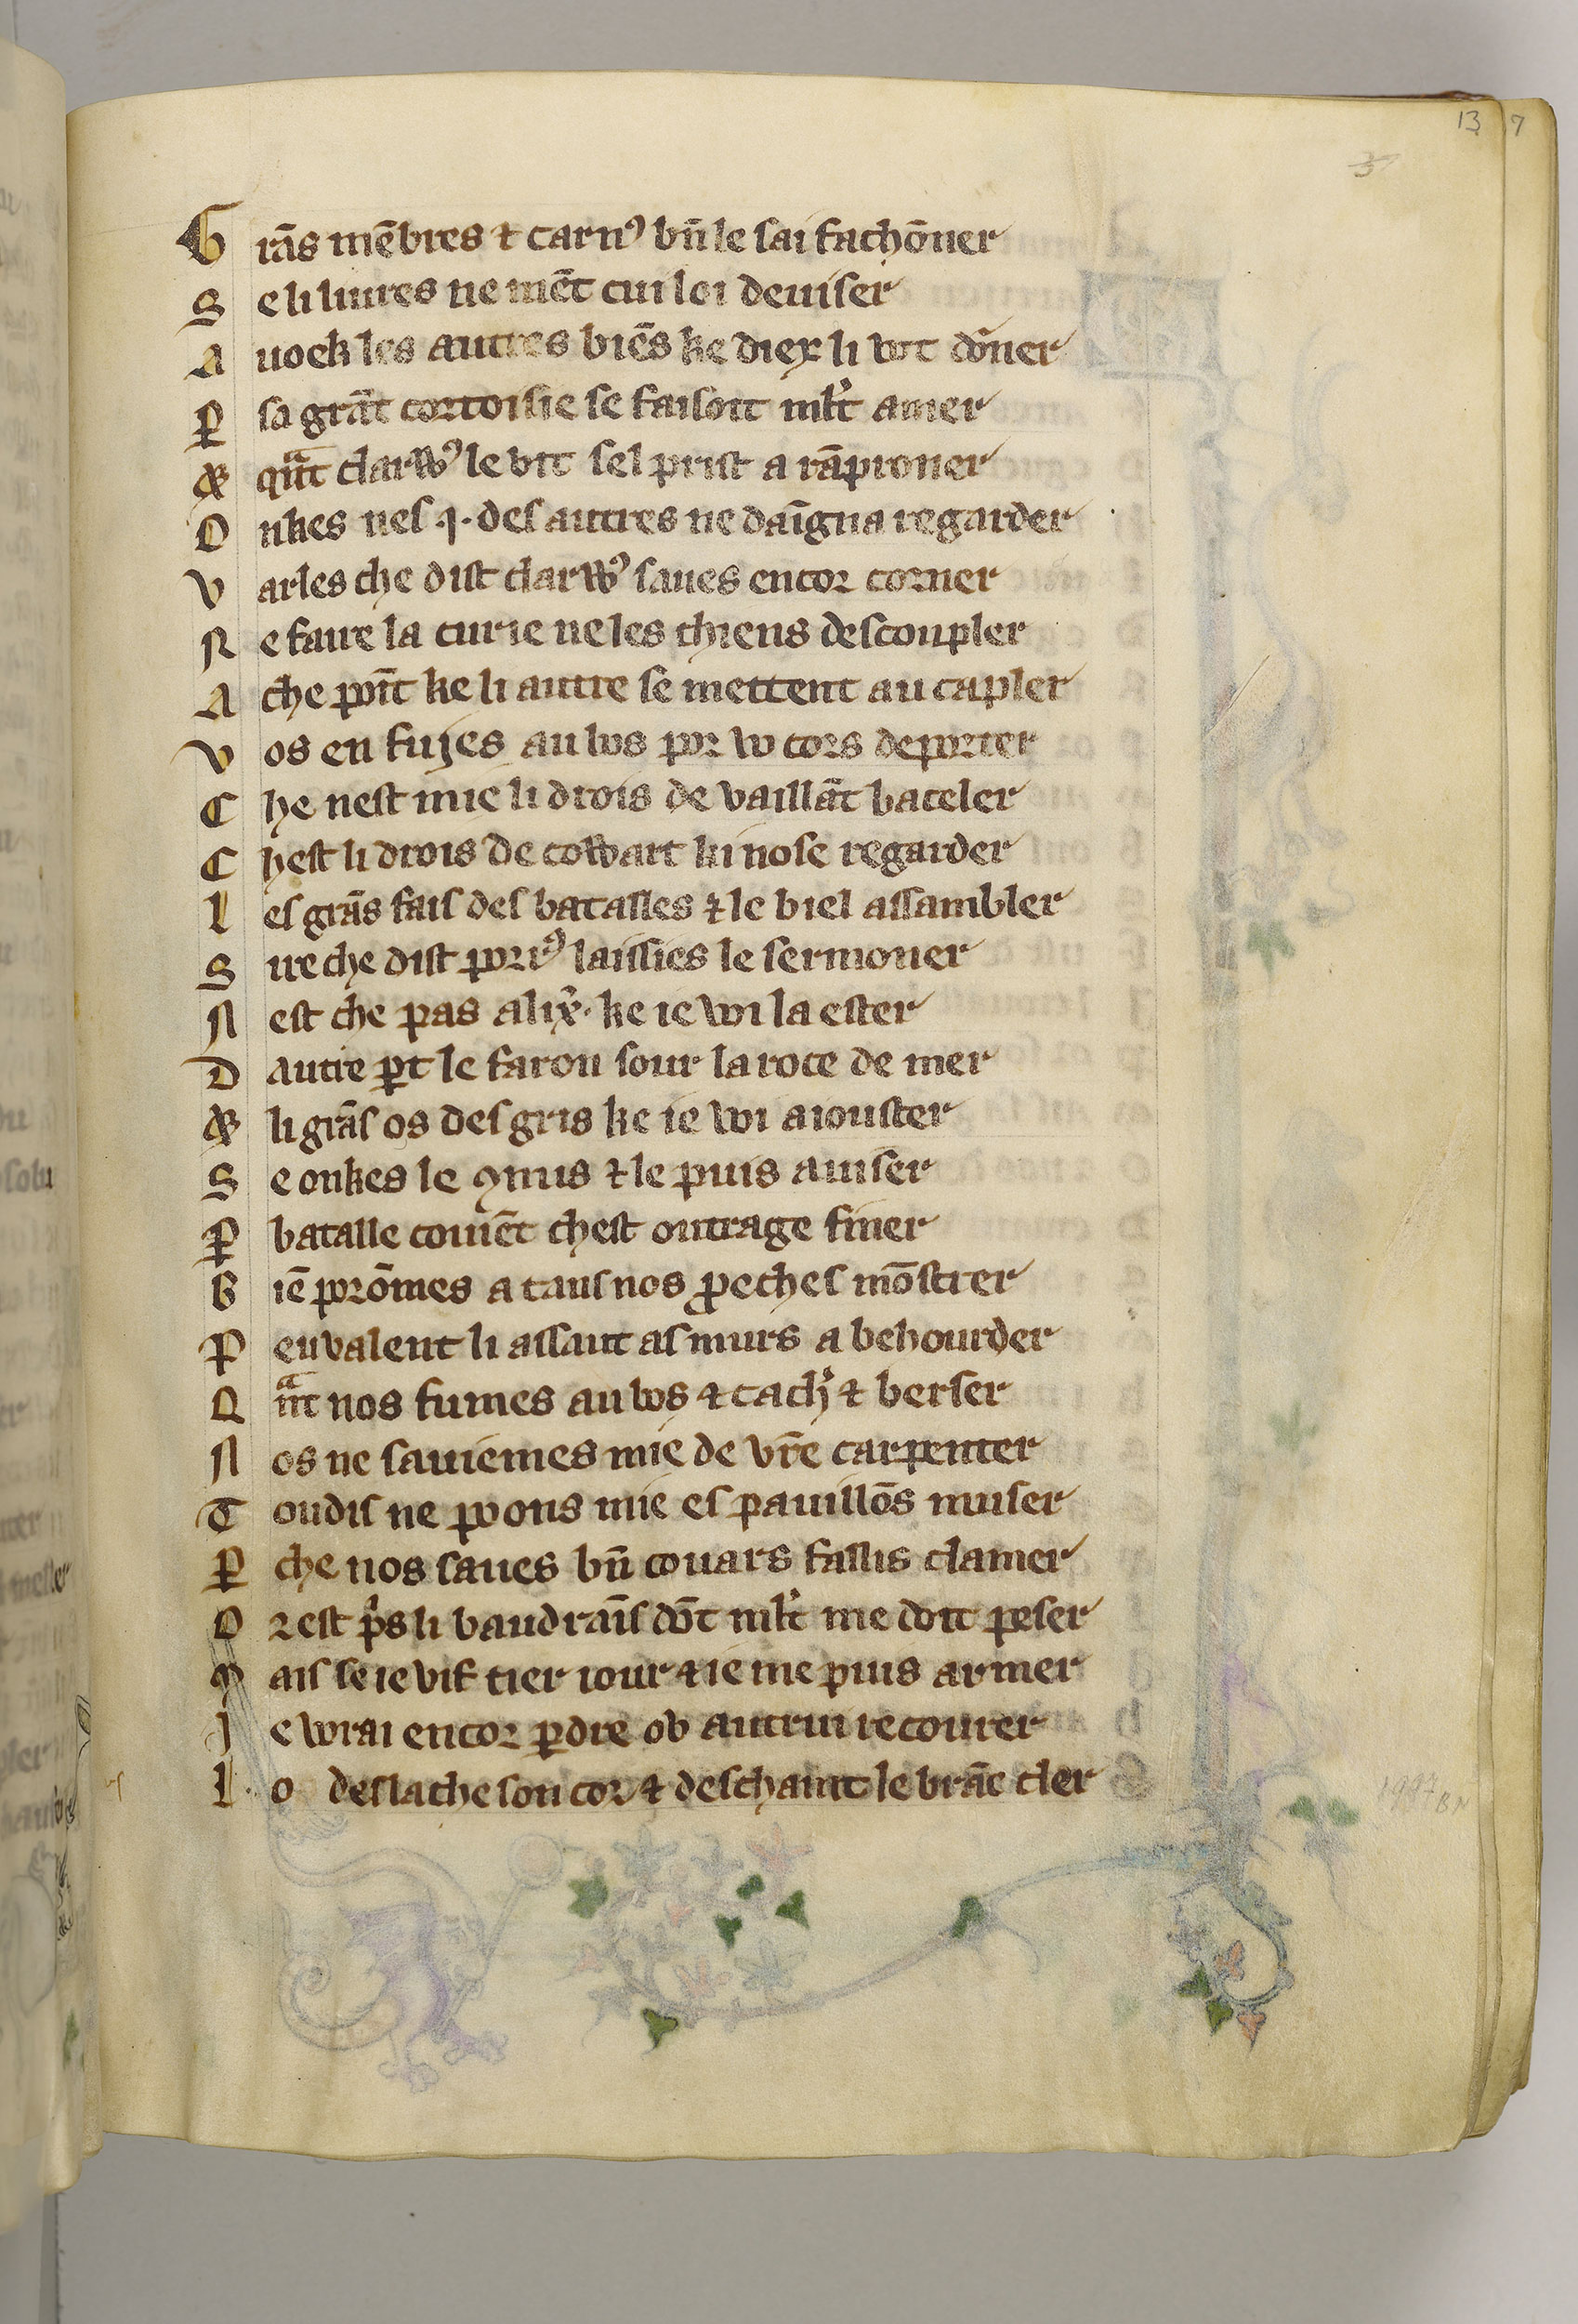 13 7
G rãs mẽbres ⁊ carnꝰ bñ le sai fachõner
S e li liures ne mẽt cui loi deuiser
A uoek les autres biẽs ke diex li vot dõner
ꝑ sa grãt cortoisie se faisoit ml̃t amer
⁊ qᵃ̃t clarwꝰ le vit sel prist a rãproner
O nkes nes .j. des autres ne daĩgna regarder
V arles che dist clarwꝰ saues encor corner
N e faire la cuirie ne les chiens descoupler
A che poĩt ke li autre se mettent au capler
V os en fuies au bos por vo cors deporter
C he nest mie li drois de vaillãt bateler
C hest li drois de cowart ki nose regarder
L es grãs fais des batalles ⁊ le biel assambler
S ire che dist porꝰ laissies le sermoner
N est che pas alix̃. ke ie voi la ester
D autre ꝑt le faron sour la roce de mer
⁊ li grãs os des gris ke ie voi aiouster
S e onkes le ꝯnuis ⁊ le puis auiser
ꝑ batalle couiẽt chest outrage finer
B iẽ porõmes a taus nos ꝓeches mõstrer
P eu valent li assaut as murs a behourder
Q ᵃ̃t nos fumes au bos ⁊ cachᷣ ⁊ berser
N os ne sauiemes mie de vr̃e carpenter
T oudis ne poons mie es pauillõs muser
ꝑ che nos saues bñ couars fallis clamer
O r est pͥs li baudraĩs dõt ml̃t me doit peser
M ais se ie vif tier iour ⁊ ie me puis armer
J e vorai encor ꝑdre ob autrui recourer
L o deslache son cor ⁊ deschaint le brãc cler